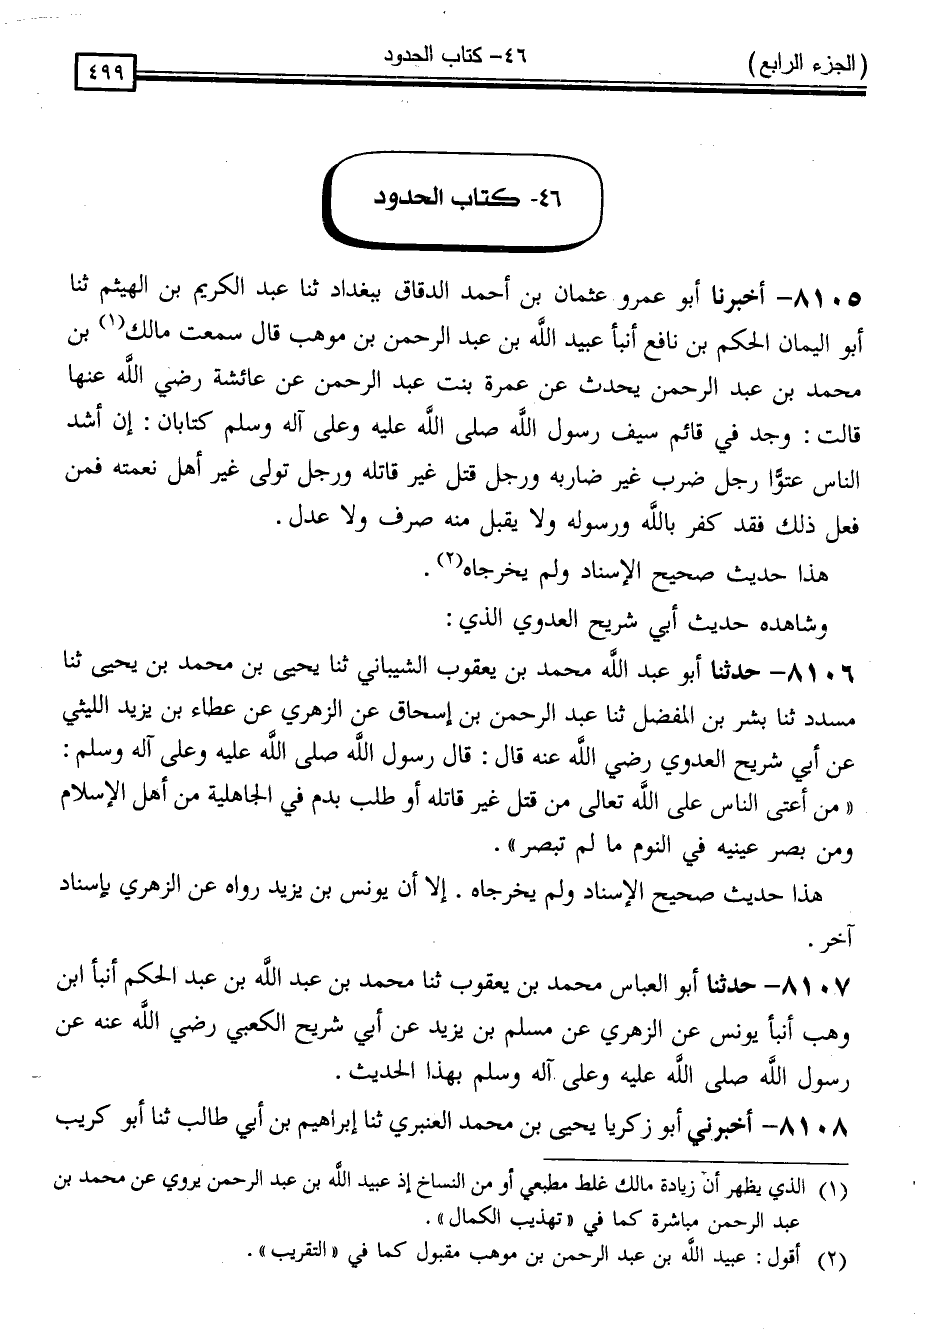 (الجزء الرابع)
٤٦- كتاب الحدود
٤٩٩
٤٦- كتاب الحدود
٨١٠٥- أخبرنا أبو عمرو عثمان بن أحمد الدقاق ببغداد ثنا عبد الكريم بن الهيثم ثنا
أبو اليمان الحكم بن نافع أنبأ عبيد الله بن عبد الرحمن بن موهب قال سمعت مالك(١) بن
محمد بن عبد الرحمن يحدث عن عمرة بنت عبد الرحمن عن عائشة رضي الله عنها
قالت : وجد في قائم سيف رسول الله صلى الله عليه وعلى آله وسلم كتابان : إن أشد
الناس عتوًّا رجل ضرب غير ضاربه ورجل قتل غير قاتله ورجل تولى غير أهل نعمته فمن
فعل ذلك فقد كفر بالله ورسوله ولا يقبل منه صرف ولا عدل .
هذا حديث صحيح الإسناد ولم يخرجاه(٢) .
وشاهده حديث أبي شريح العدوي الذي :
٨١٠٦- حدثنا أبو عبد الله محمد بن يعقوب الشيباني ثنا يحيى بن محمد بن يحيى ثنا
مسدد ثنا بشر بن المفضل ثنا عبد الرحمن بن إسحاق عن الزهري عن عطاء بن يزيد الليثي
عن أبي شريح العدوي رضي الله عنه قال : قال رسول الله صلى الله عليه وعلى آله وسلم :
« من أعتى الناس على الله تعالى من قتل غير قاتله أو طلب بدم في الجاهلية من أهل الإسلام
ومن بصر عينيه في النوم ما لم تبصر» .
هذا حديث صحيح الإسناد ولم يخرجاه . إلا أن يونس بن يزيد رواه عن الزهري بإسناد
آخر .
٨١٠٧- حدثنا أبو العباس محمد بن يعقوب ثنا محمد بن عبد الله بن عبد الحكم أنبأ ابن
وهب أنبأ يونس عن الزهري عن مسلم بن يزيد عن أبي شريح الكعبي رضي الله عنه عن
رسول الله صلى الله عليه وعلى آله وسلم بهذا الحديث .
٨١٠٨- أخبرني أبو زكريا يحيى بن محمد العنبري ثنا إبراهيم بن أبي طالب ثنا أبو كريب
(١) الذي يظهر أن زيادة مالك غلط مطبعي أو من النساخ إذ عبيد الله بن عبد الرحمن يروي عن محمد بن
عبد الرحمن مباشرة كما في «تهذيب الكمال» .
(٢) أقول : عبيد الله بن عبد الرحمن بن موهب مقبول كما في «التقريب» .